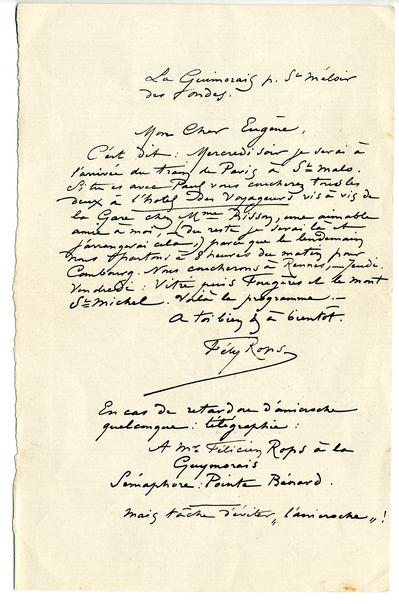 La Guimorais p. St Méloir
des Ondes.
Mon Cher Eugène,
C'est dit : Mercredi soir je serai à
l'arrivée du train de Paris à St Malo.
Si tu es avec Paul vous coucherez tous les
deux à l'hotel des Voyageurs vis à vis de
la Gare chez Mme Bisson, une aimable
amie à moi, (du reste je serai là et
j'arrangerai cela,) parce que le lendemain
nous partons à 8 heures du matin pour
Combourg. Nous coucherons à Rennes, – Jeudi.
Vendredi : Vitré puis Fougères et le mont
St Michel. Voilà le programme. –
A toi bien & à bientôt.
Fély Rops
En cas de retard ou d'anicroche
quelconque : télégraphie :
A Mr Félicien Rops à la
Guymorais
Sémaphore : Pointe Bénard.
Mais tâche d'éviter „ l'anicroche „ !